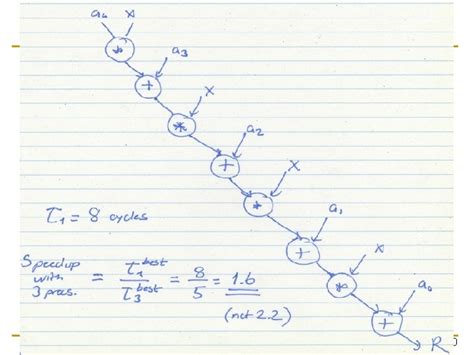 a₄ x
*
a₃
+
x
*
a₂
+
x
*
a₁
+
x
*
a₀
+
R
T₁ = 8 cycles
Speedup with 3 procs. = T₁ᵇᵉˢᵗ / T₃ᵇᵉˢᵗ = 8/5 = 1.6
(not 2.2)